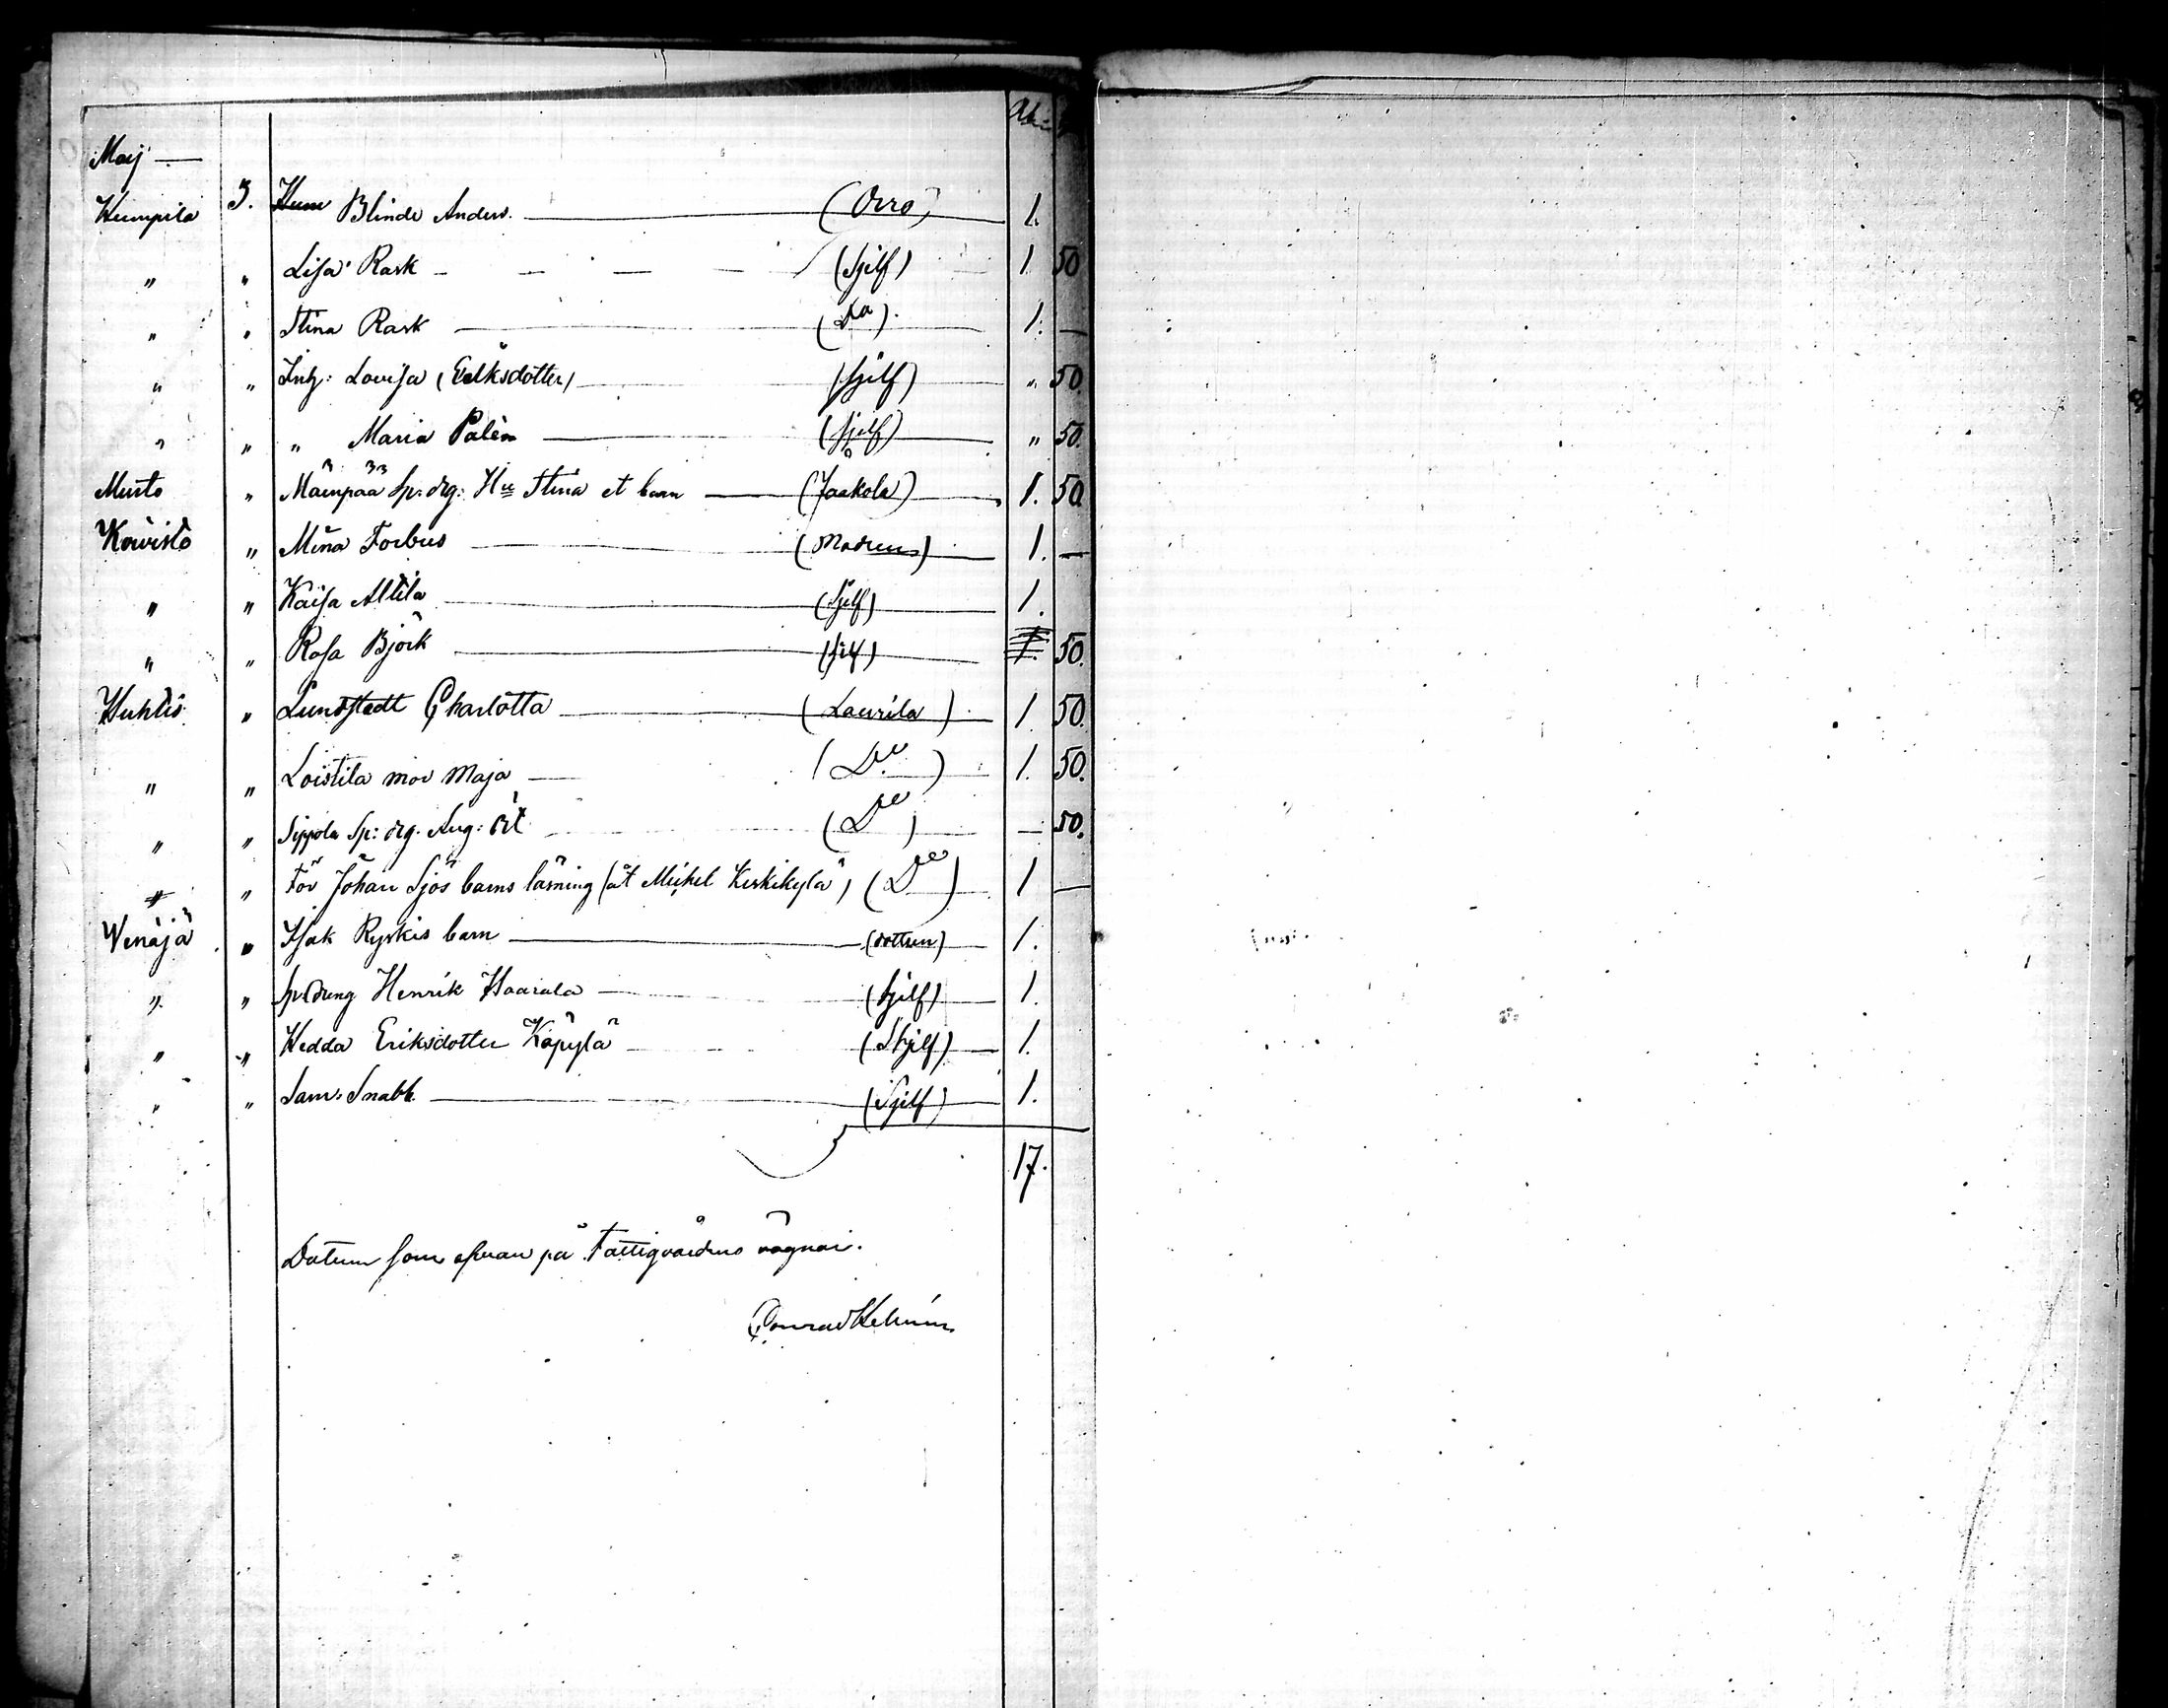 Maj —
Humpila 3. Hum Blinde Anders. (Orro) 1.
" " Lisa Rask (Sjelf) 1 50
" " Stina Rask (Do). 1. —
" " Inh: Lovisa (Eriksdotter) (Sjelf) " 50.
" " " Maria Palèn (Sjelf) " 50.
Murto " Mäenpää Sp: drg: Hu Stina et barn (Jaakola) 1. 50.
Koivisto " Mina Forbus (Modren) 1. —
" " Kaisa Alttila (Sjelf) 1.
" " Rosa Björk (Sjelf) 1. 50.
Huhtis " Lundstedt Charlotta (Laurila) 1 50.
" " Loistila mor Maja (Do) 1. 50.
" " Sippola Sp: drg. Aug: (Do) — 50.
" " För Johan Sjös barns läsning (åt Mickel Keskikylä) (Do) 1 —
Wenäjä " Isak Ryskis barn (dottren) 1.
" " Sp: dreng Henrik Haarala (Sjelf) 1.
" " Hedda Eriksdotter Käpylä (Sjelf) 1.
" " Sam: Snabb. (Sjelf) 1.
17.
Datum som ofvan på Fattigvårdens vägnar.
Conrad